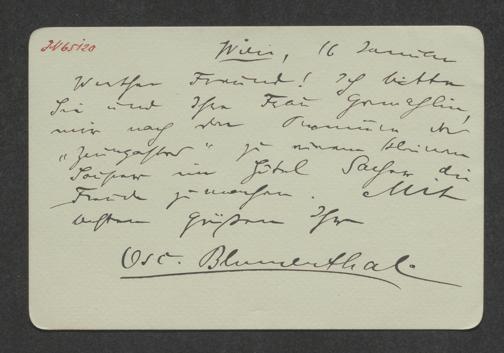 IN 65120
Wien, 16 Januar
Werther Freund! Ich bitte
Sie und Ihre Frau Gemahlin,
mir nach der Premiere der
" " zu einem kleinen
Souper im Hôtel Sacher die
Freude zu machen. Mit
besten Grüßen Ihr
Osc. Blumenthal.